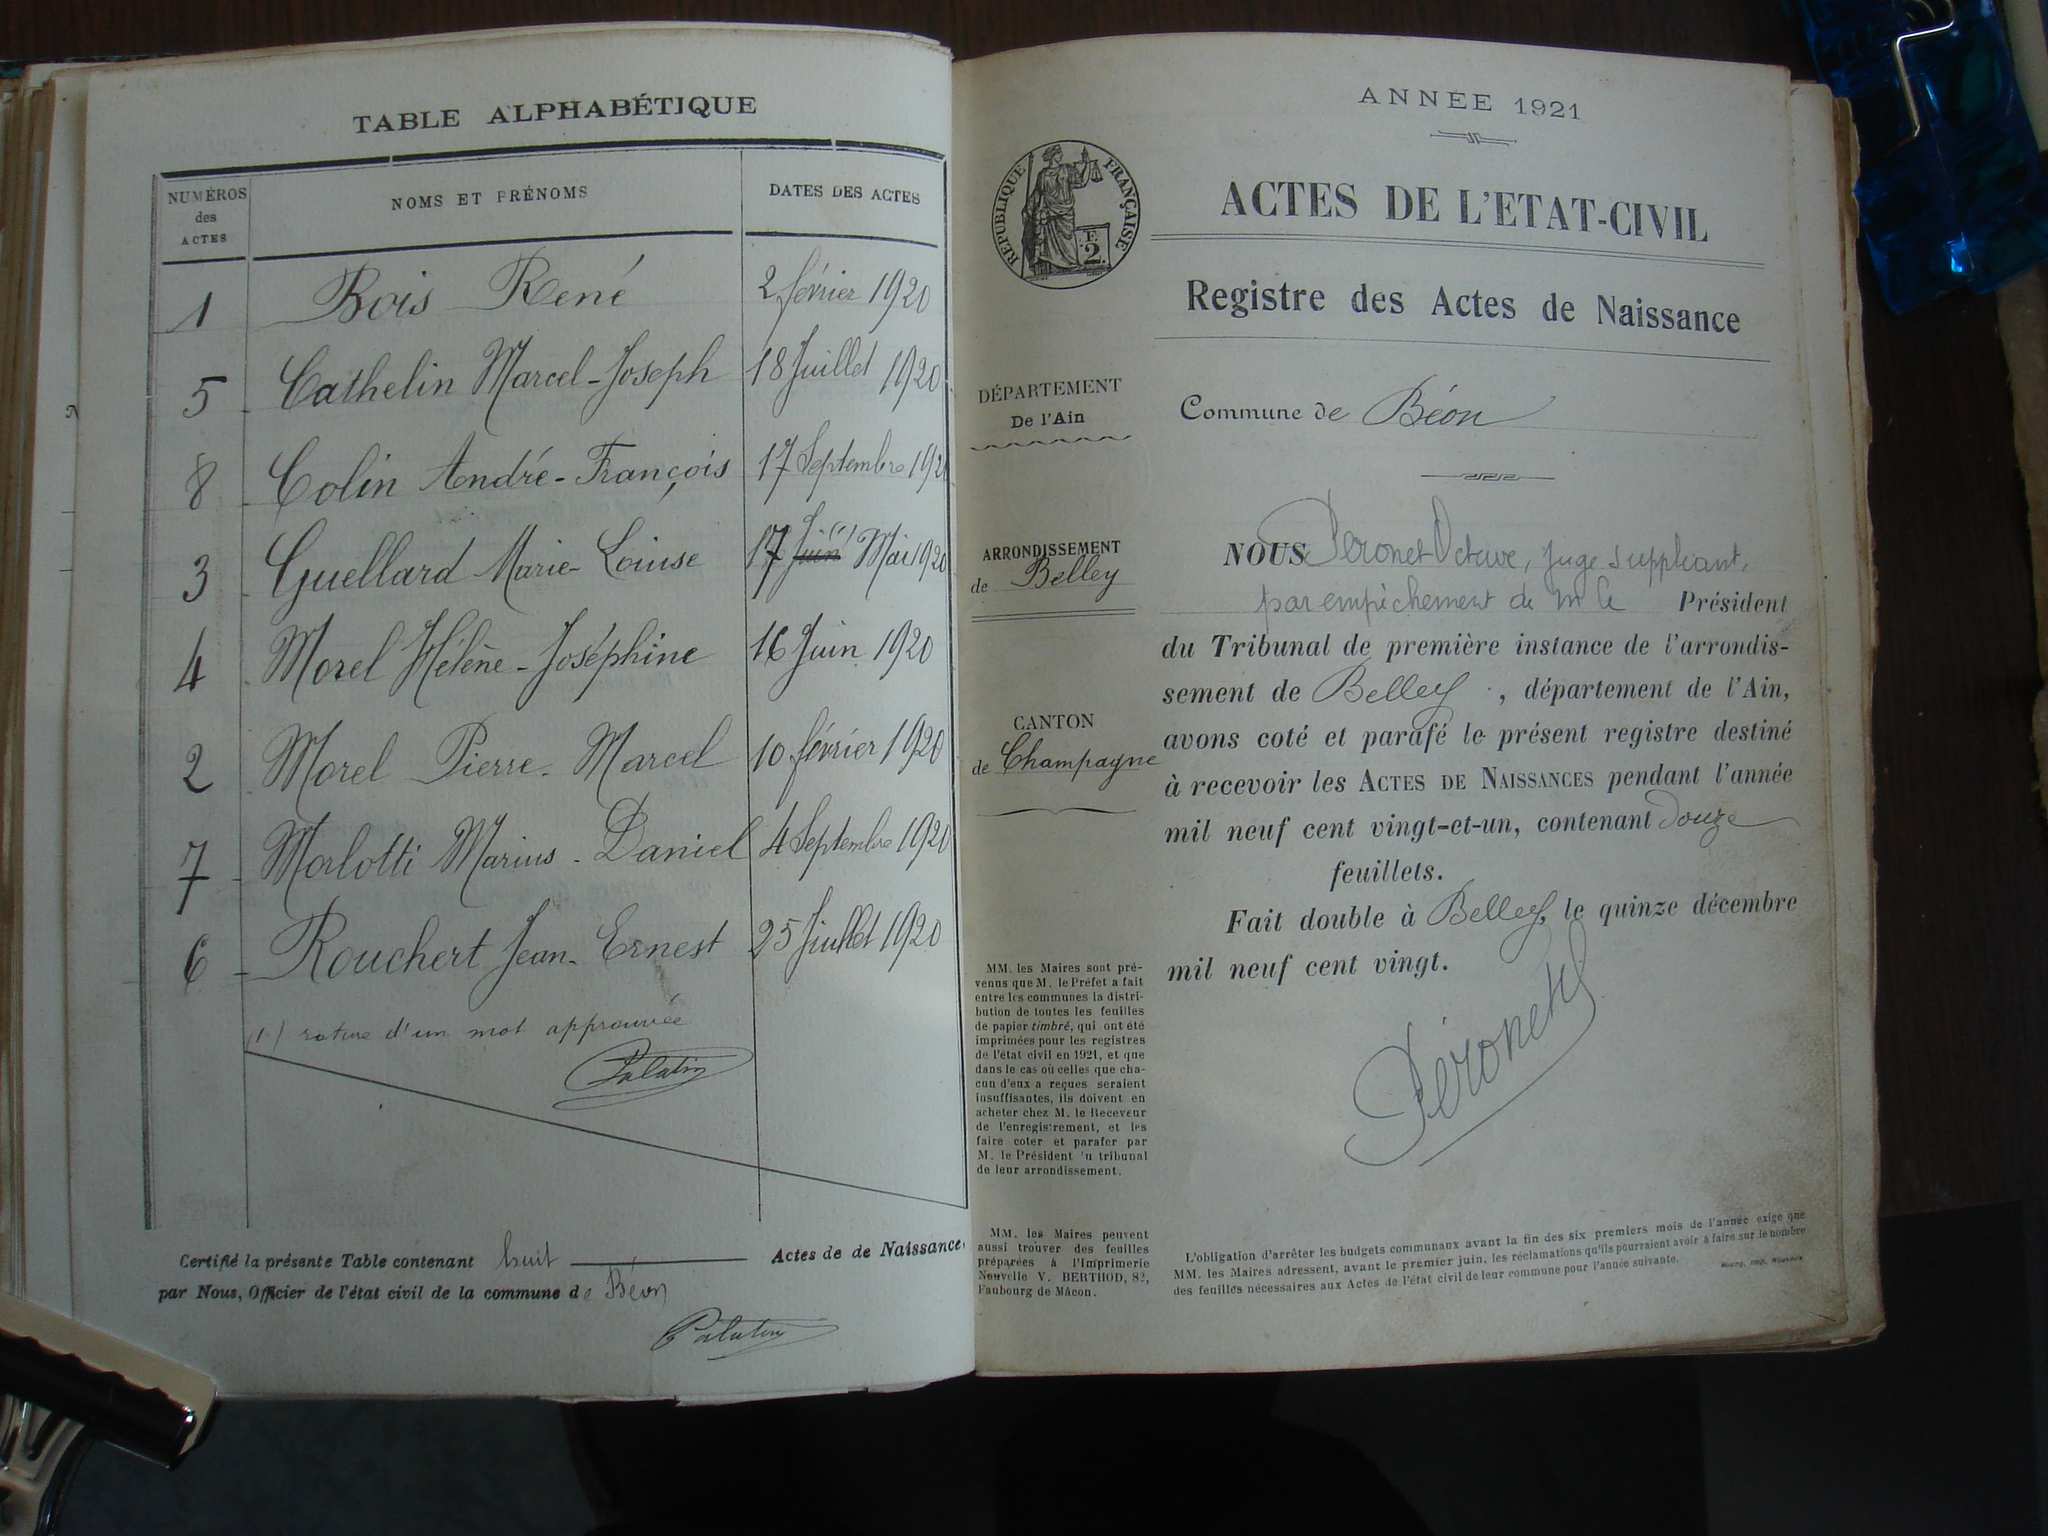 TABLE ALPHABÉTIQUE
NUMÉROS des ACTES NOMS ET PRÉNOMS DATES DES ACTES
1 Bois René 2 février 1920
5 Cathelin Marcel-Joseph 18 Juillet 1920
8 Colin André-François 17 Septembre 1920
3 Guellard Marie-Louise 17 Juin (1) Mai 1920
4 Morel Hélène-Joséphine 16 Juin 1920
2 Morel Pierre-Marcel 10 février 1920
7 Morlotti Marius-Daniel 4 Septembre 1920
6 Rouchert Jean-Ernest 25 Juillet 1920
(1) rature d'un mot approuvée
Palatin
Certifié la présente Table contenant huit Actes de de Naissance,
par Nous, Officier de l'état civil de la commune de Béon
Palatin
ANNÉE 1921
RÉPUBLIQUE FRANÇAISE
F. 2.
ACTES DE L'ETAT-CIVIL
Registre des Actes de Naissance
DÉPARTEMENT
De l'Ain
Commune de Béon
ARRONDISSEMENT
de Belley
CANTON
de Champagne
NOUS Péronet Octave, juge suppléant,
par empêchement de M le Président
du Tribunal de première instance de l'arrondis-
sement de Belley, département de l'Ain,
avons coté et parafé le présent registre destiné
à recevoir les ACTES DE NAISSANCES pendant l'année
mil neuf cent vingt-et-un, contenant douze
feuillets.
Fait double à Belley, le quinze décembre
mil neuf cent vingt.
Péronet
MM. les Maires sont pré-
venus que M. le Préfet a fait
entre les communes la distri-
bution de toutes les feuilles
de papier timbré, qui ont été
imprimées pour les registres
de l'état civil en 1921, et que
dans le cas où celles que cha-
cun d'eux a reçues seraient
insuffisantes, ils doivent en
acheter chez M. le Receveur
de l'enregistrement, et les
faire coter et parafer par
M. le Président 'u tribunal
de leur arrondissement.
MM. les Maires peuvent
aussi trouver des feuilles
préparées à l'Imprimerie
Nouvelle V. BERTHOD, 82,
Faubourg de Mâcon.
L'obligation d'arrêter les budgets communaux avant la fin des six premiers mois de l'année exige que
MM. les Maires adressent, avant le premier juin, les réclamations qu'ils pourraient avoir à faire sur le nombre
des feuilles nécessaires aux Actes de l'état civil de leur commune pour l'année suivante.